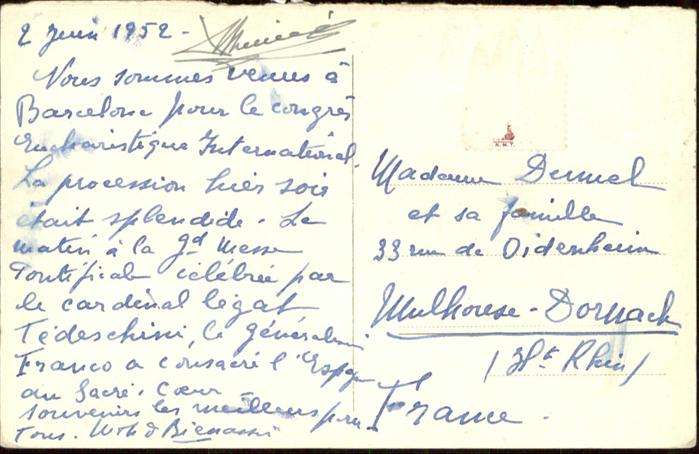 2 Juin 1952 -
Nous sommes venus à
Barcelone pour le congrès
Eucharistique International.
La procession hier soir
était splendide. Le
matin à la gd Messe
Pontificale célébrée par
le cardinal légat
Tedeschini, le généralissime
Franco a consacré l'Espagne
au Sacré-Cœur
souvenirs les meilleurs pour
Tous.
Madame Demmel
et sa famille
33 rue de Didenheim
Mulhouse-Dornach
(Ht Rhin)
France.